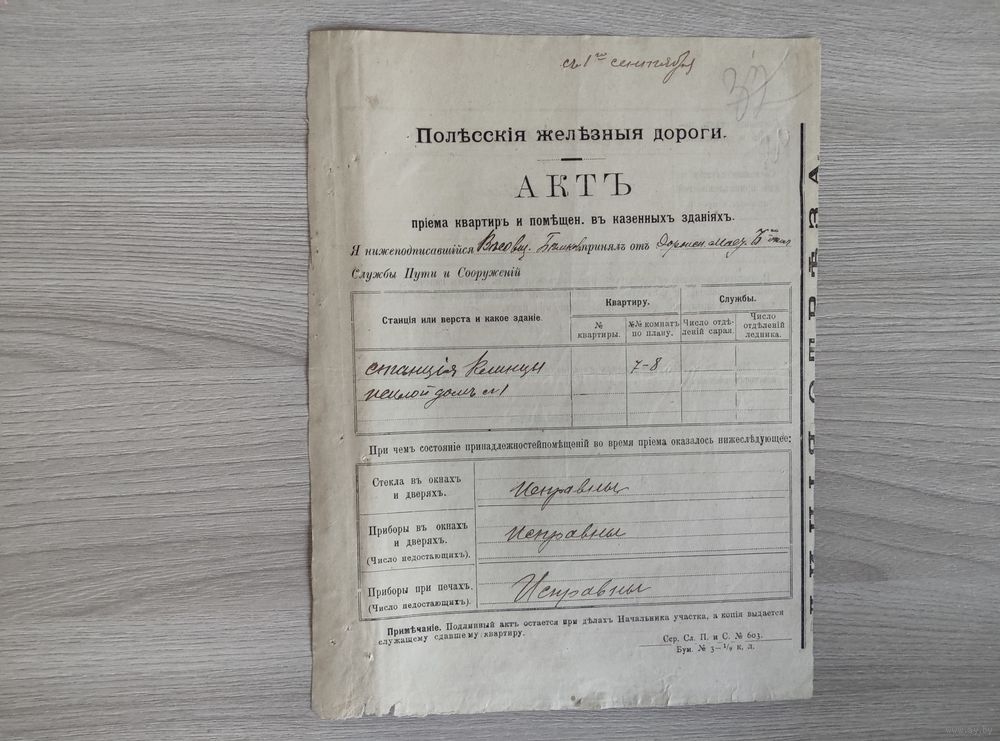 съ 1го сентября
37
Полѣсскія желѣзныя дороги.
АКТЪ
пріема квартиръ и помѣщен. въ казенныхъ зданіяхъ.
Я нижеподписавшійся Вѣсовщ. принялъ отъ Дорожн. Маст.
Службы Пути и Сооруженій
Станція или верста и какое зданіе.
Квартиру.
Службы.
№ квартиры.
№№ комнатъ по плану.
Число отдѣленій сарая.
Число отдѣленій ледника.
станція Клинцы
7-8
жилой домъ №1
При чемъ состояніе принадлежностейпомѣщеній во время пріема оказалось нижеслѣдующее:
Стекла въ окнахъ
и дверяхъ.
Исправны
Приборы въ окнахъ
и дверяхъ.
(Число недостающихъ).
Исправны
Приборы при печахъ.
(Число недостающихъ).
Исправны
Примѣчаніе. Подлинный актъ остается при дѣлахъ Начальника участка, а копія выдается
служащему сдавшему квартиру.
Сер. Сл. П. и С. № 603.
Бум. № 3—1/9 к. л.
ЛИНІЯ ОТРѢЗА
www.ay.by